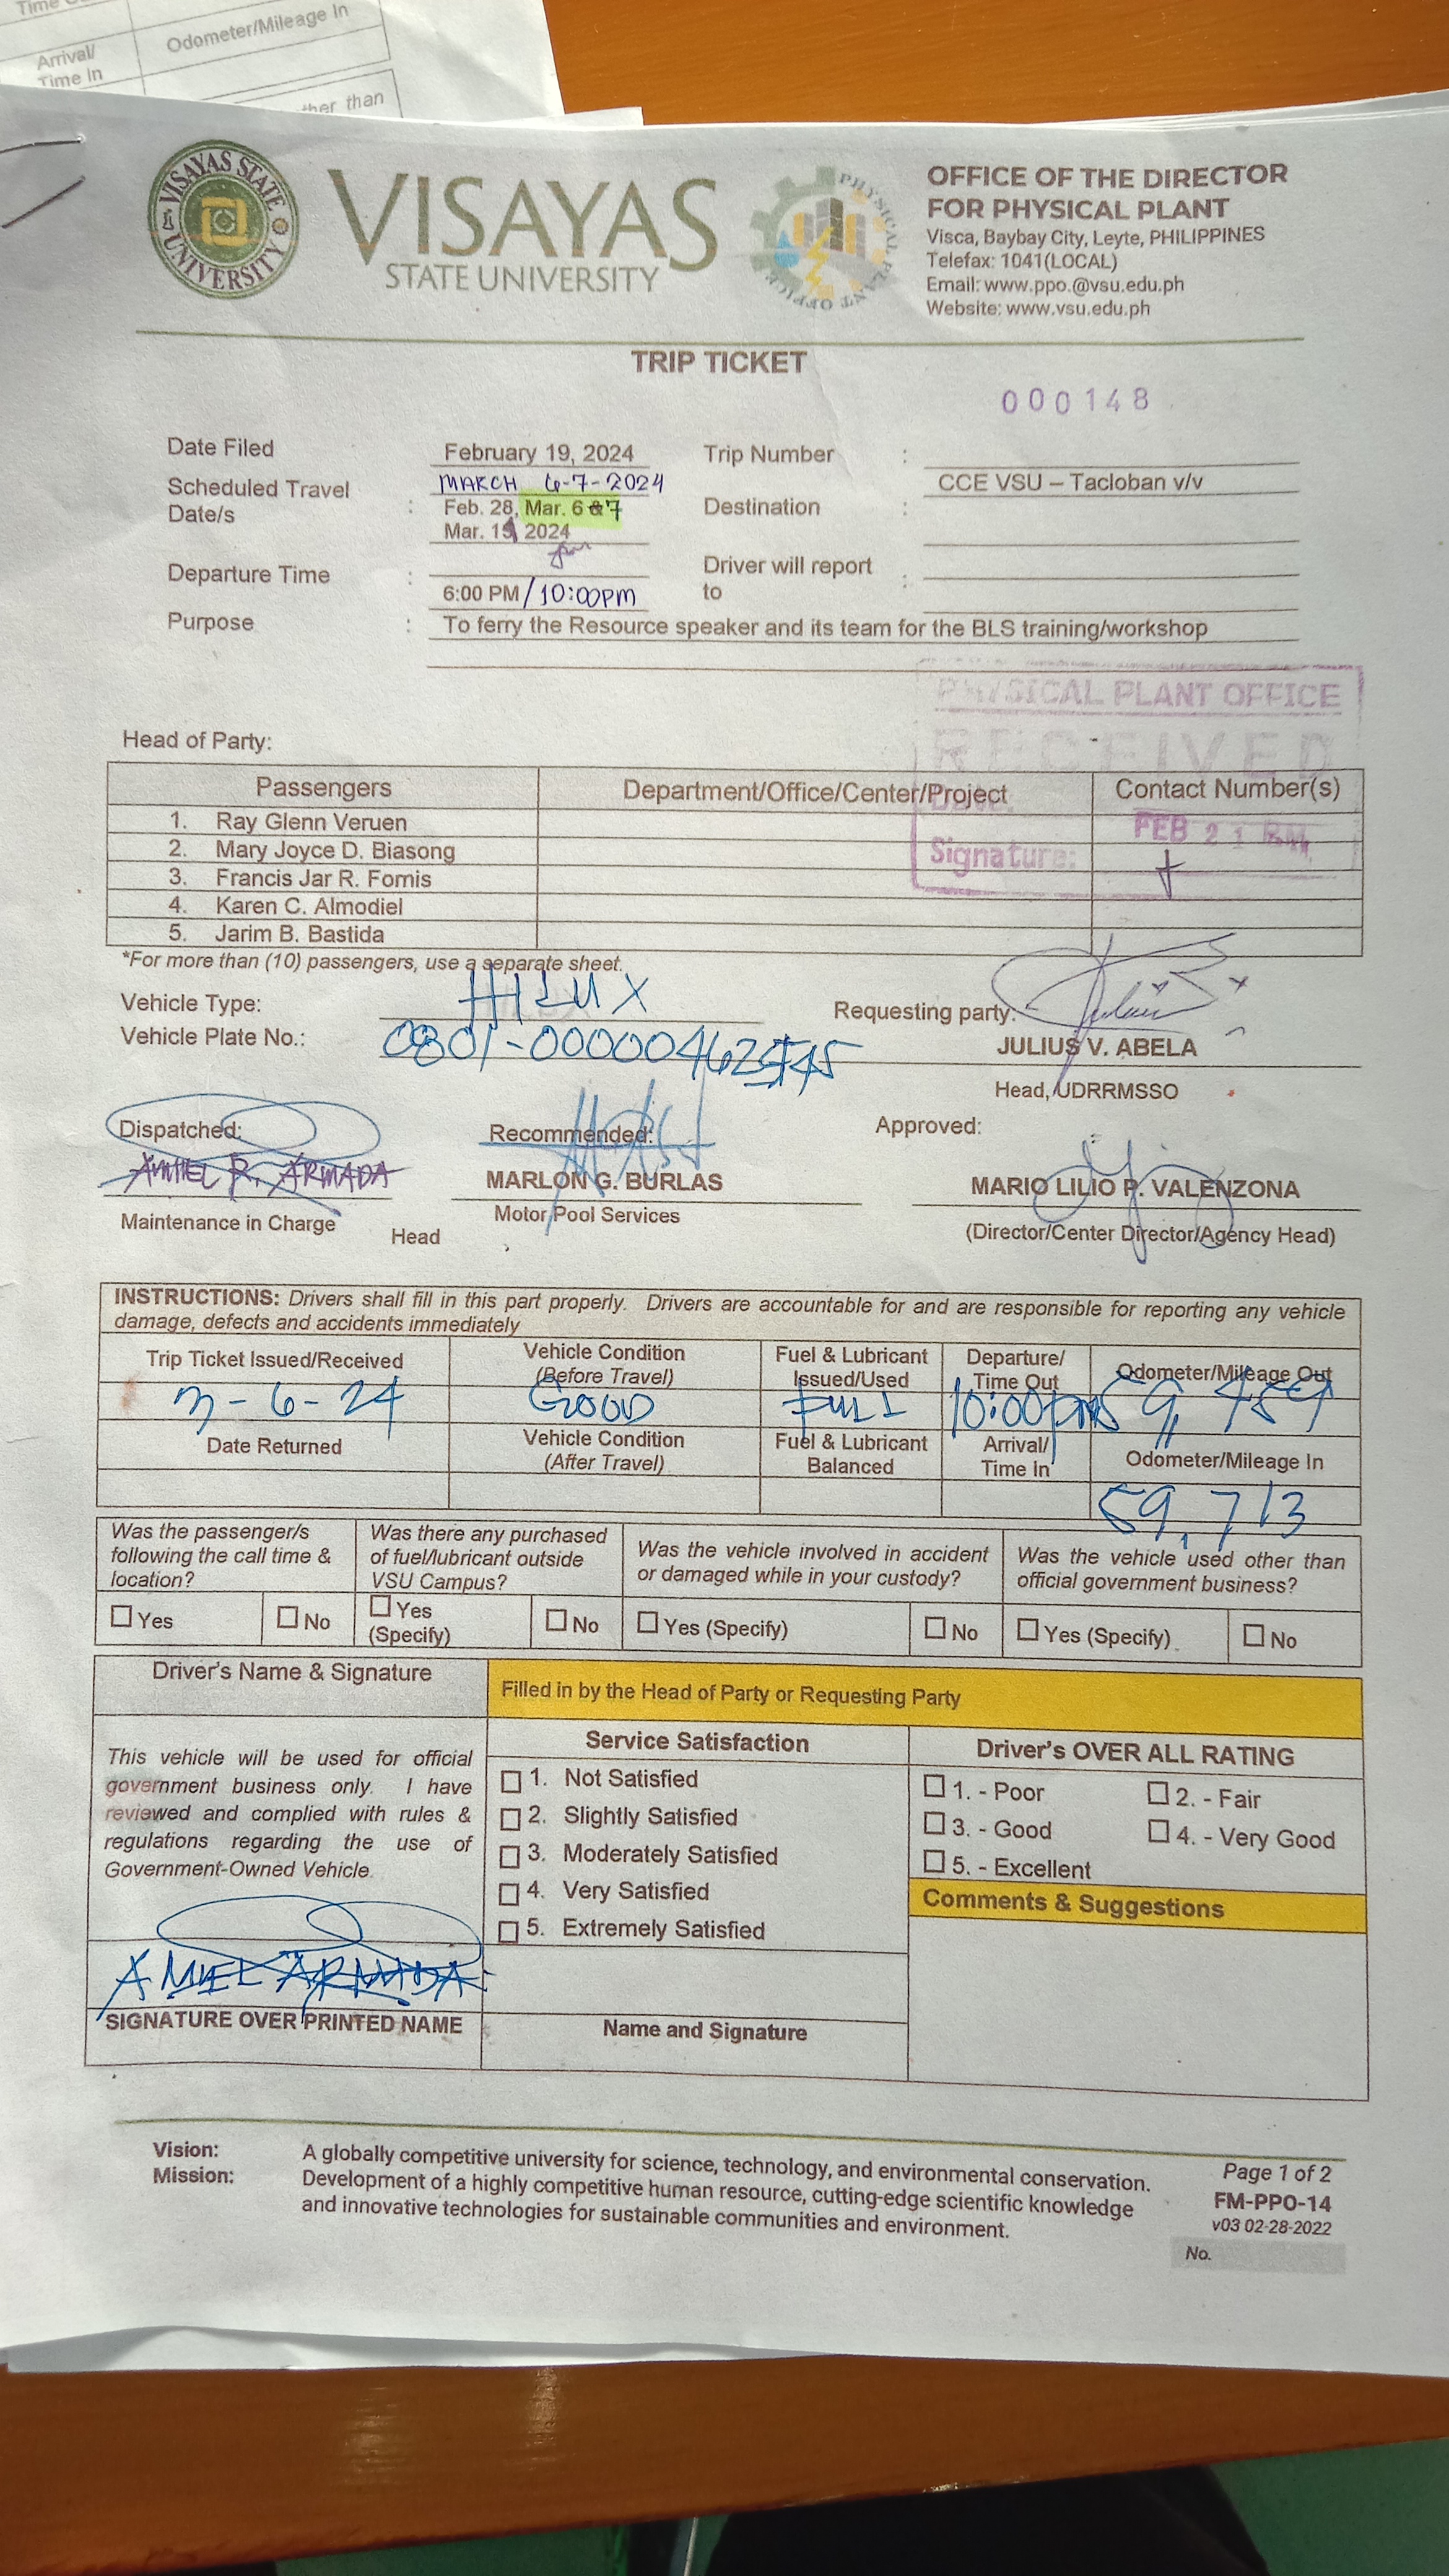 Arrival/
Time In
Odometer/Mileage In
VISAYAS STATE UNIVERSITY
VISAYAS
STATE UNIVERSITY
PHYSICAL PLANT OFFICE
OFFICE OF THE DIRECTOR
FOR PHYSICAL PLANT
Visca, Baybay City, Leyte, PHILIPPINES
Telefax: 1041(LOCAL)
Email: www.ppo.@vsu.edu.ph
Website: www.vsu.edu.ph
TRIP TICKET
000148
Date Filed February 19, 2024 Trip Number :
Scheduled Travel Date/s : MARCH 6-7-2024
Feb. 28, Mar. 6 & 7
Mar. 15, 2024
Destination : CCE VSU – Tacloban v/v
Departure Time : 6:00 PM / 10:00PM Driver will report to :
Purpose : To ferry the Resource speaker and its team for the BLS training/workshop
PHYSICAL PLANT OFFICE
RECEIVED
FEB 21
Signature:
Head of Party:
Passengers Department/Office/Center/Project Contact Number(s)
1. Ray Glenn Veruen
2. Mary Joyce D. Biasong
3. Francis Jar R. Fornis
4. Karen C. Almodiel
5. Jarim B. Bastida
*For more than (10) passengers, use a separate sheet.
Vehicle Type: HILUX
Vehicle Plate No.:
Requesting party:
JULIUS V. ABELA
Head, UDRRMSSO
Dispatched: Recommended: Approved:
AMIEL R. ARMADA MARLON G. BURLAS MARIO LILIO P. VALENZONA
Maintenance in Charge Head Motor Pool Services (Director/Center Director/Agency Head)
INSTRUCTIONS: Drivers shall fill in this part properly. Drivers are accountable for and are responsible for reporting any vehicle
damage, defects and accidents immediately
Trip Ticket Issued/Received Vehicle Condition (Before Travel) Fuel & Lubricant Issued/Used Departure/ Time Out Odometer/Mileage Out
3-6-24 GOOD FULL 10:00pm 59,459
Date Returned Vehicle Condition (After Travel) Fuel & Lubricant Balanced Arrival/ Time In Odometer/Mileage In
59,713
Was the passenger/s following the call time & location?
Was there any purchased of fuel/lubricant outside VSU Campus?
Was the vehicle involved in accident or damaged while in your custody?
Was the vehicle used other than official government business?
Yes No Yes (Specify) No Yes (Specify) No Yes (Specify) No
Driver's Name & Signature
Filled in by the Head of Party or Requesting Party
This vehicle will be used for official
government business only. I have
reviewed and complied with rules &
regulations regarding the use of
Government-Owned Vehicle.
AMIEL ARMADA
SIGNATURE OVER PRINTED NAME
Service Satisfaction
1. Not Satisfied
2. Slightly Satisfied
3. Moderately Satisfied
4. Very Satisfied
5. Extremely Satisfied
Name and Signature
Driver's OVER ALL RATING
1. - Poor 2. - Fair
3. - Good 4. - Very Good
5. - Excellent
Comments & Suggestions
Vision: A globally competitive university for science, technology, and environmental conservation.
Mission: Development of a highly competitive human resource, cutting-edge scientific knowledge
and innovative technologies for sustainable communities and environment.
Page 1 of 2
FM-PPO-14
v03 02-28-2022
No.